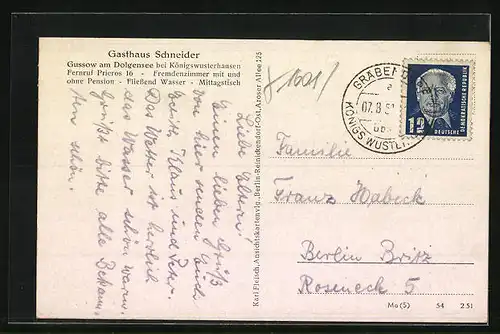 Gasthaus Schneider
Gussow am Dolgensee bei Königswusterhausen
Fernruf Prieros 16 - Fremdenzimmer mit und
ohne Pension - Fließend Wasser - Mittagstisch
Liebe Eltern!
Einen lieben Gruß
von hier senden Euch
Klaus und
Das Wetter ist herrlich
das Wasser schön warm.
Grüßt bitte alle Bekann-
ten schön.
Karl Fleisch, Ansichtskartenvlg., Berlin-Reinickendorf-Ost, Aroser Allee 125
1601/
GRABEN
a
07.8.5
KÖNIGS WUSTER
12
DEUTSCHE
DEMOKRATISCHE REPUBLIK
Familie
Franz Habeck
Berlin Britz
Roseneck 5
Ma (5) 54 2 51